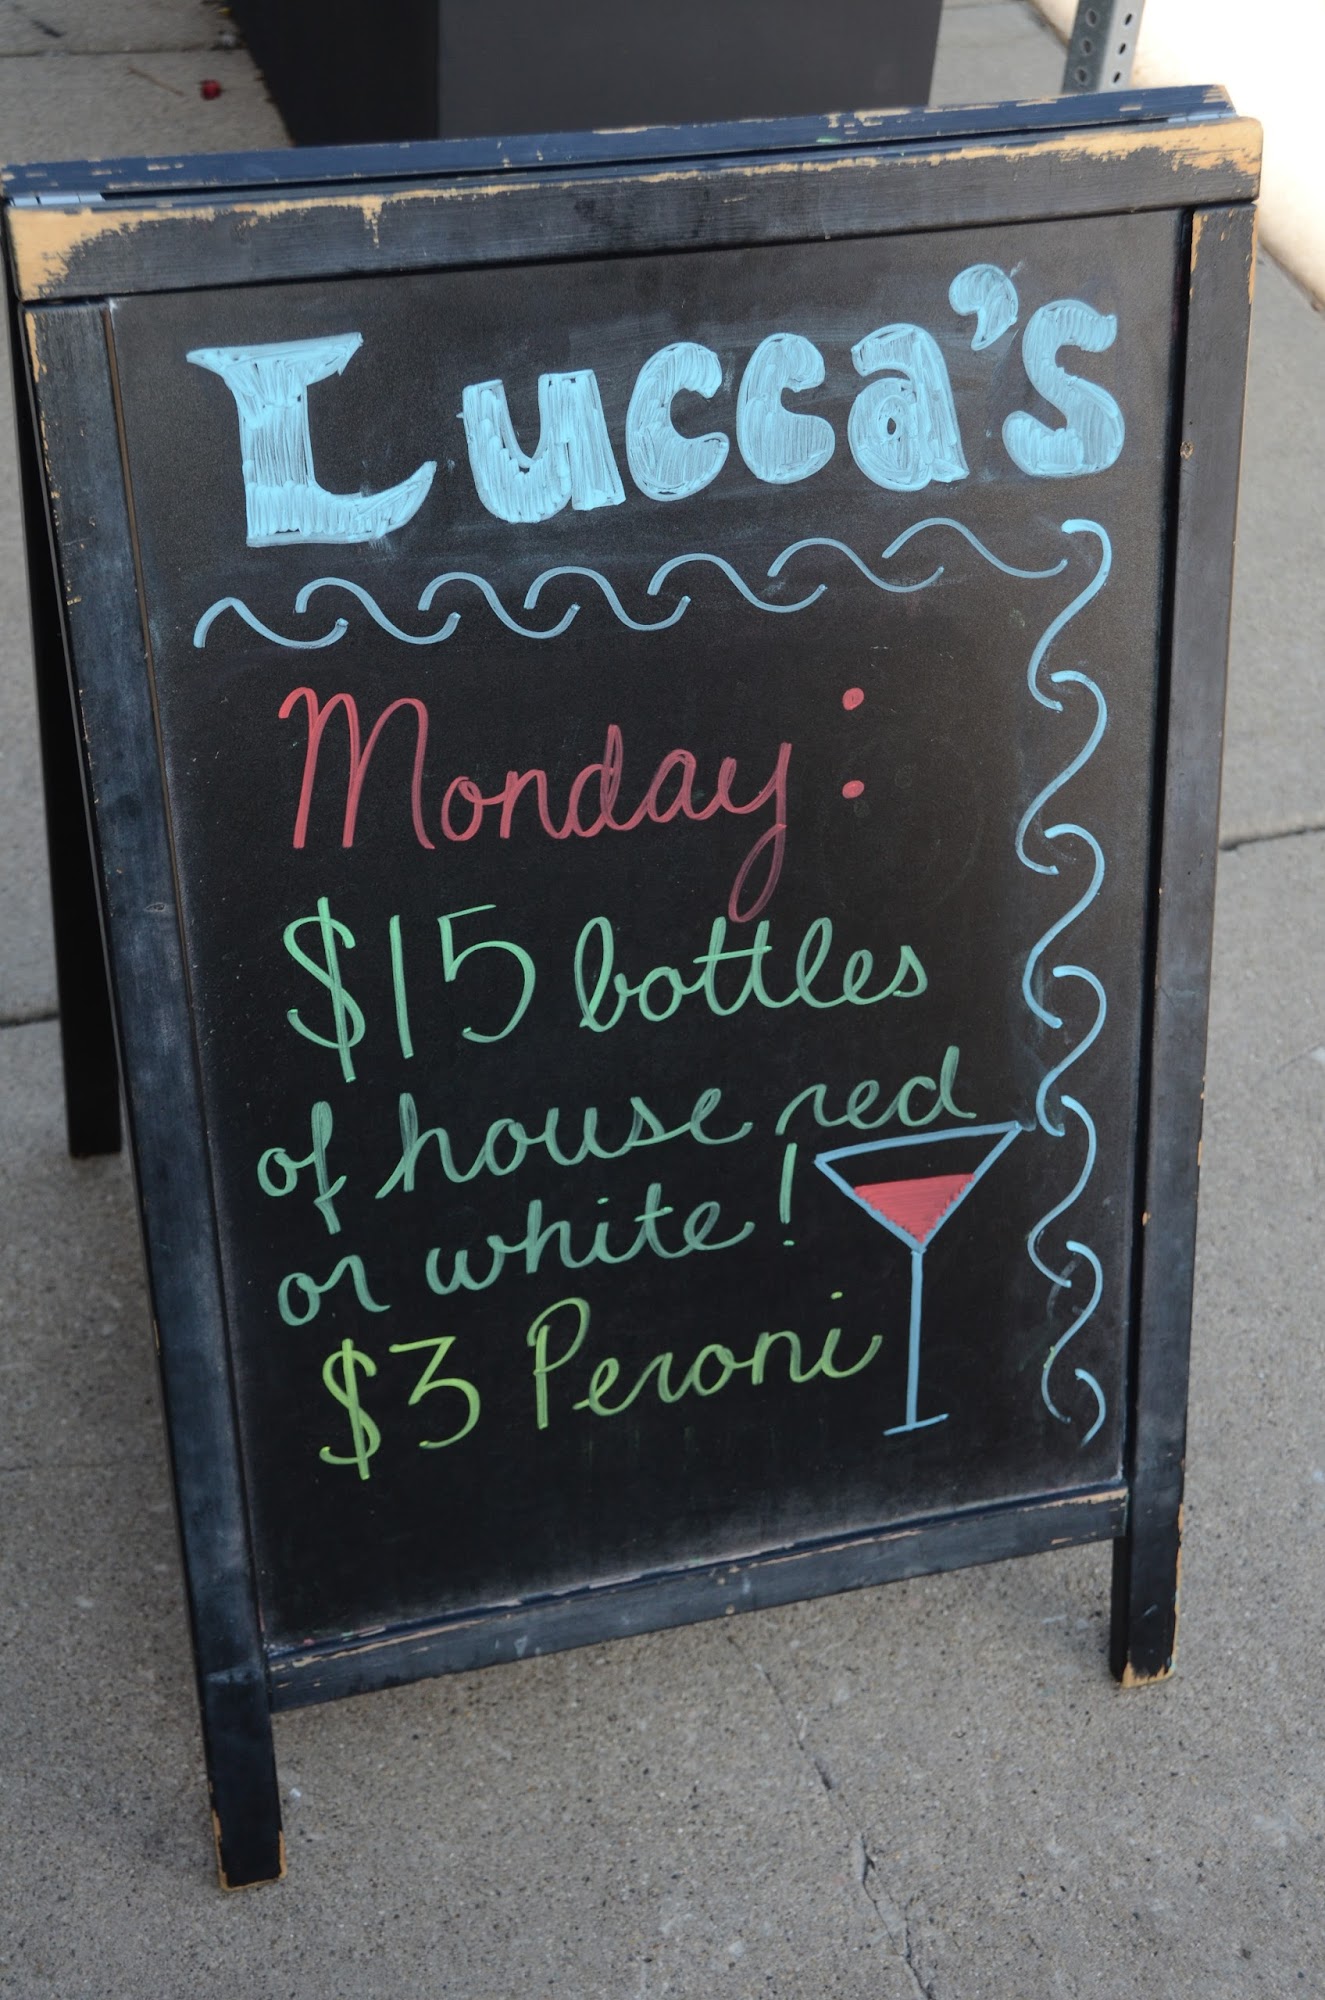 Lucca's
Monday:
$15 bottles
of house red
or white!
$3 Peroni